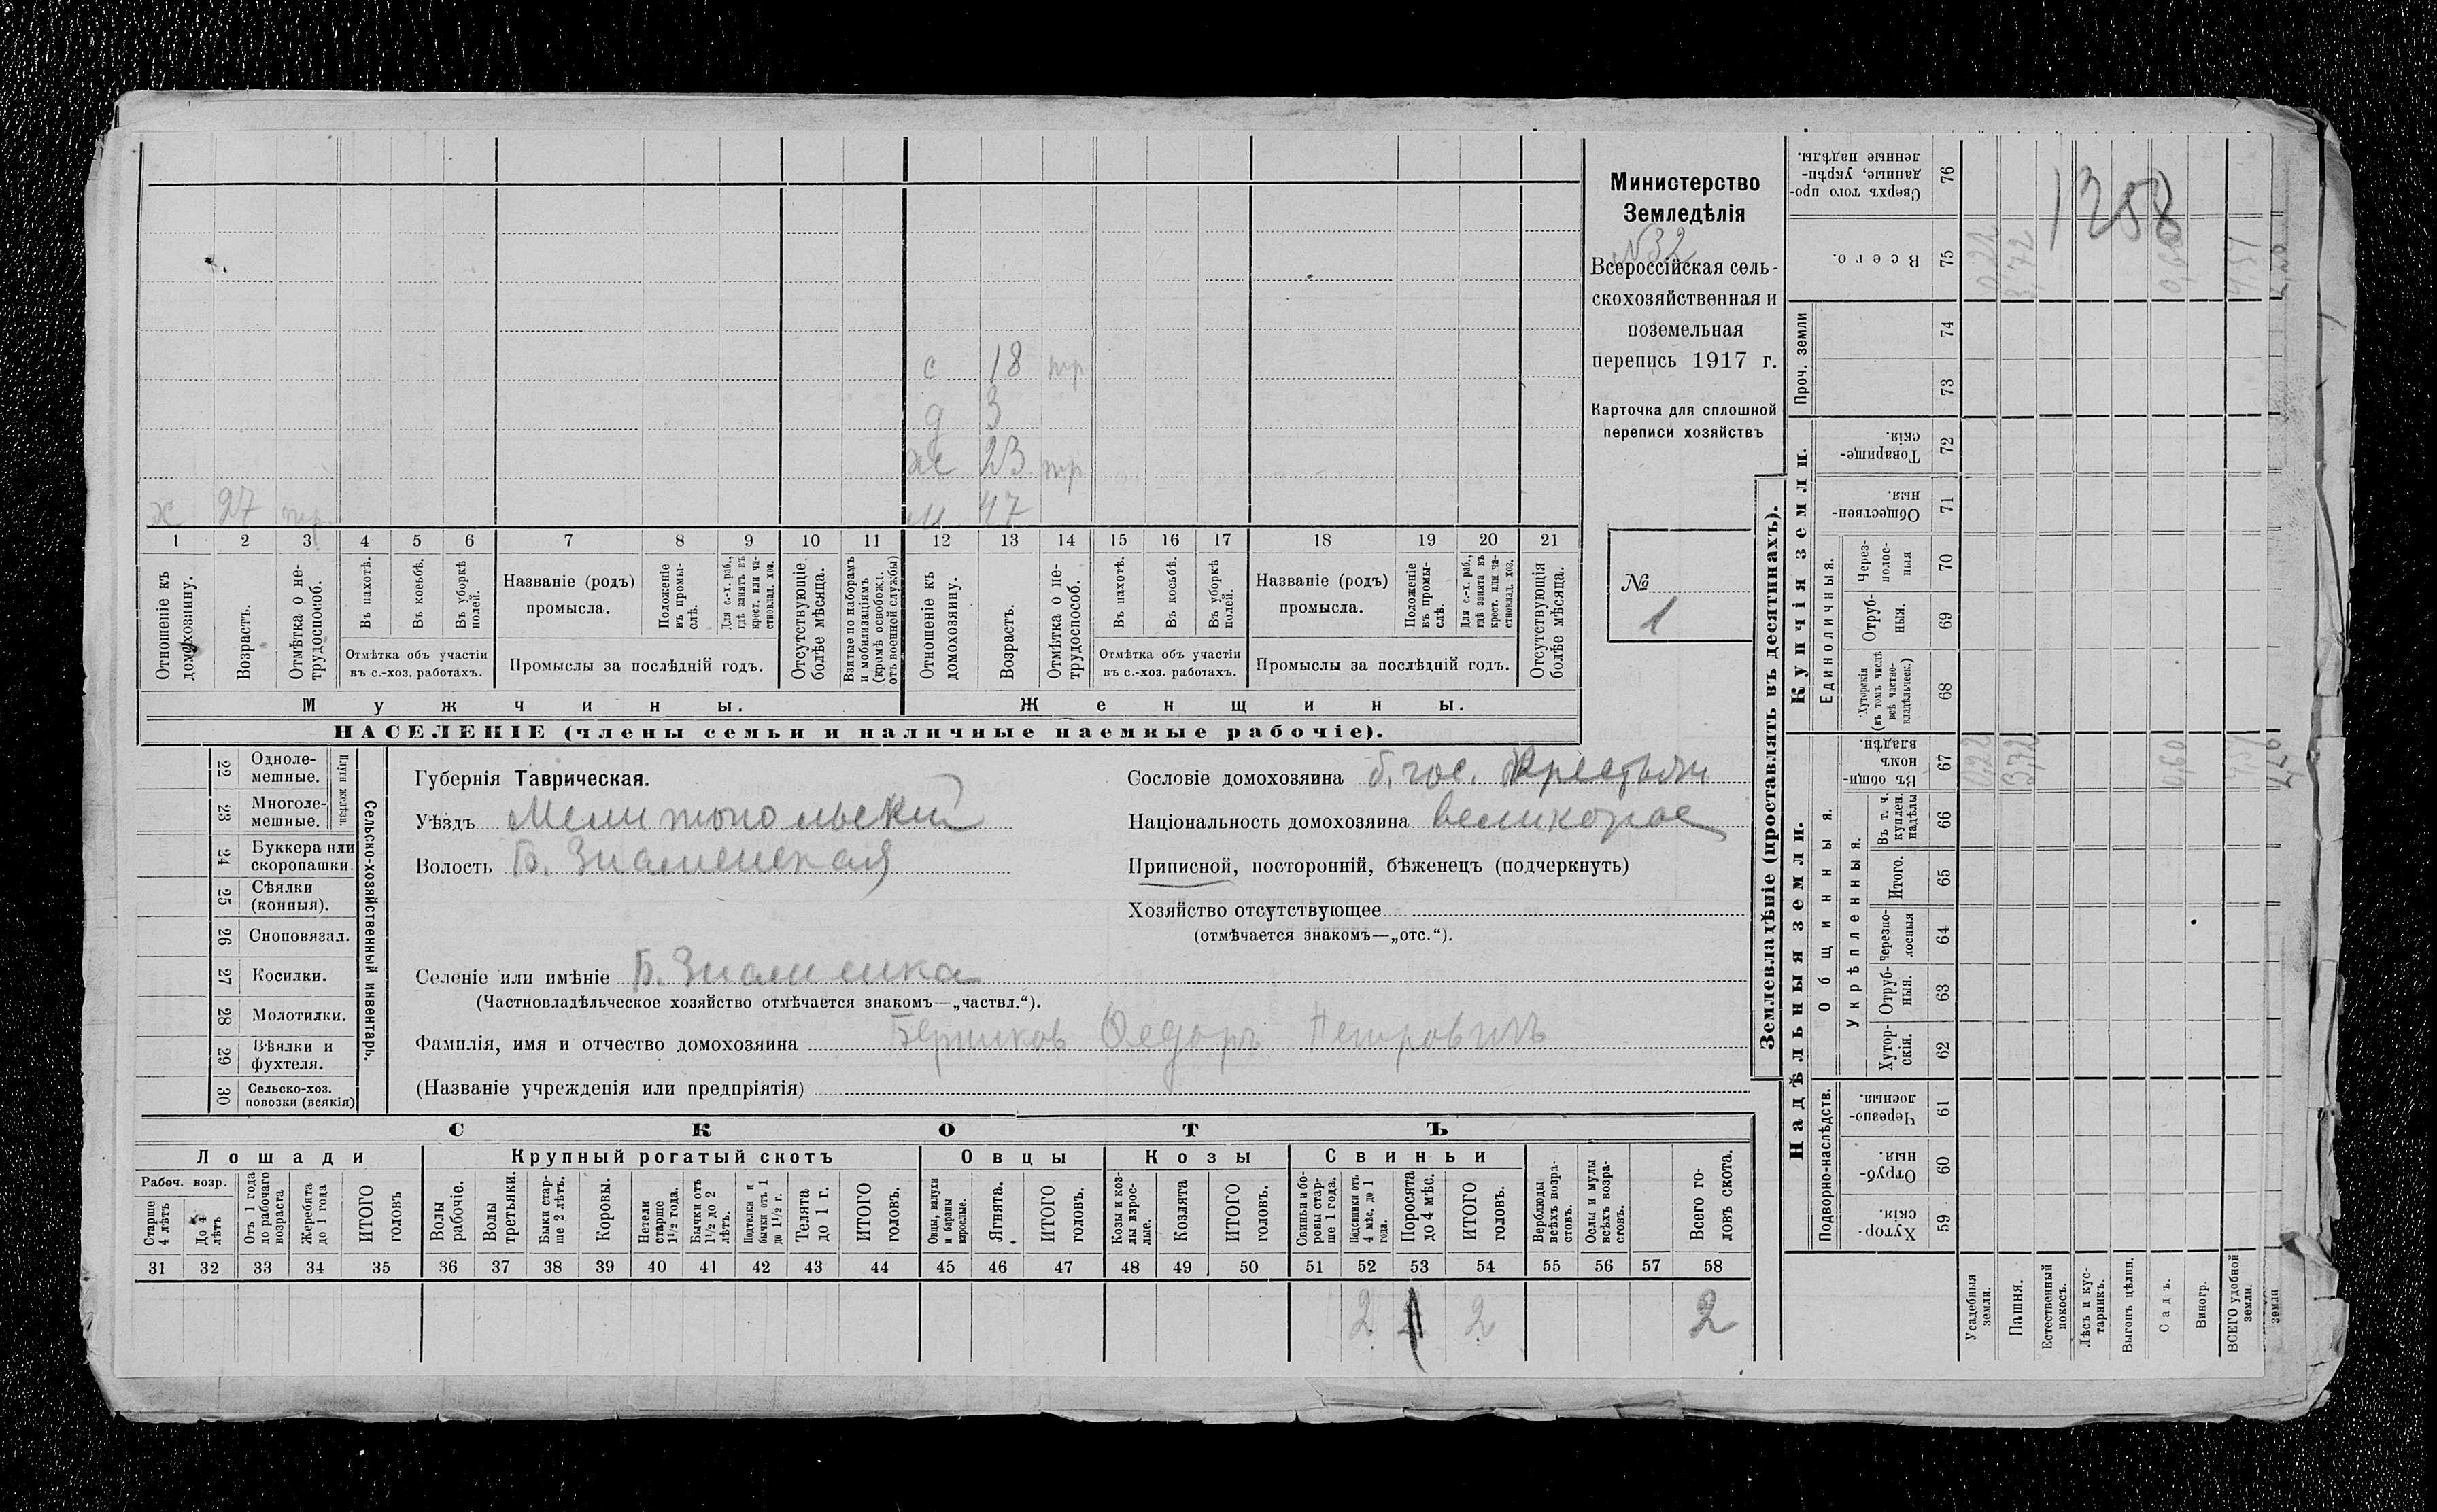 с 18 тр
д 3
ж 23 тр
х 27 тр м 47
1 2 3 4 5 6 7 8 9 10 11 12 13 14 15 16 17 18 19 20 21
Отношеніе къ домохозяину.
Возрастъ.
Отмѣтка о нетрудоспособ.
Въ пахотѣ.
Въ косьбѣ.
Въ уборкѣ полей.
Отмѣтка объ участіи
въ с.-хоз. работахъ.
Названіе (родъ)
промысла.
Положеніе въ промыслѣ.
Для с.-х. раб., гдѣ занятъ въ крест. или частновлад. хоз.
Промыслы за послѣдній годъ.
Отсутствующіе болѣе мѣсяца.
Взятые по наборамъ и мобилизаціямъ (кромѣ освобожд. отъ военной службы)
Отношеніе къ домохозяину.
Возрастъ.
Отмѣтка о нетрудоспособ.
Въ пахотѣ.
Въ косьбѣ.
Въ уборкѣ полей.
Отмѣтка объ участіи
въ с.-хоз. работахъ.
Названіе (родъ)
промысла.
Положеніе въ промыслѣ.
Для с.-х. раб., гдѣ занята въ крест. или частновлад. хоз.
Промыслы за послѣдній годъ.
Отсутствующія болѣе мѣсяца.
Мужчины. Женщины.
НАСЕЛЕНІЕ (члены семьи и наличные наемные рабочіе).
Министерство
Земледѣлія
№32
Всероссійская сель-
скохозяйственная и
поземельная
перепись 1917 г.
Карточка для сплошной
переписи хозяйствъ
№
1
22 Одноле-
мешные.
23 Многоле-
мешные.
Плуги желѣзн.
24 Буккера или
скоропашки
25 Сѣялки
(конныя).
26 Сноповязал.
27 Косилки.
28 Молотилки.
29 Вѣялки и
фухтеля.
30 Сельско-хоз.
повозки (всякія)
Сельско-хозяйственный инвентарь.
Губернія Таврическая.
Уѣздъ Мелитопольскій
Волость Б. Знаменская
Сословіе домохозяина б. гос. Крестьян
Національность домохозяина великорос
Приписной, посторонній, бѣженецъ (подчеркнуть)
Хозяйство отсутствующее
(отмѣчается знакомъ—„отс.“).
Селеніе или имѣніе Б. Знаменка
(Частновладѣльческое хозяйство отмѣчается знакомъ—„частвл.“).
Фамилія, имя и отчество домохозяина Федоръ Петровичъ
(Названіе учрежденія или предпріятія)
СКОТЪ
Лошади Крупный рогатый скотъ Овцы Козы Свиньи
Рабоч. возр.
Старше 4 лѣтъ
До 4 лѣтъ
Отъ 1 года до рабочаго возраста
Жеребята до 1 года
ИТОГО головъ
Волы рабочіе.
Волы третьяки.
Быки старше 2 лѣтъ.
Коровы.
Нетели старше 1½ года.
Бычки отъ 1½ до 2 лѣтъ.
Подтелки и бычки отъ 1 до 1½ г.
Телята до 1 г.
ИТОГО головъ.
Овцы, валухи и бараны взрослые.
Ягнята.
ИТОГО головъ.
Козы и козлы взрослые.
Козлята
ИТОГО головъ.
Свиньи и боровы старше 1 года.
Подсвинки отъ 4 мѣс. до 1 года.
Поросята до 4 мѣс.
ИТОГО головъ.
Верблюды всѣхъ возрастовъ.
Ослы и мулы всѣхъ возрастовъ.
Всего головъ скота.
31 32 33 34 35 36 37 38 39 40 41 42 43 44 45 46 47 48 49 50 51 52 53 54 55 56 57 58
2 2 2
Землевладѣніе (проставлять въ десятинахъ).
Купчія земли.
Надѣльныя земли.
Сверхъ того проданные, укрѣпленные надѣлы. 76
1258
Всего. 75 0,22 3,72 0,60
Проч. земли 74 73
Товарищескія. 72
Общественныя. 71
Единоличныя.
Черезполосныя 70
Отрубныя. 69
Хуторскія (въ томъ числѣ всѣ частновладѣльческ.) 68
Въ общинномъ владѣн. 67 0,22 3,72 0,60
Общинныя.
Укрѣпленныя.
Въ т. ч. куплен. надѣлы 66
Итого. 65
Черезполосныя 64
Отрубныя. 63
Хуторскія. 62
Подворно-наслѣдств.
Черезполосныя. 61
Отрубныя. 60
Хуторскія. 59
Усадебныя земли.
Пашня.
Естественный покосъ.
Лѣсъ и кустарникъ.
Выгонъ цѣлин.
Садъ.
Виногр.
ВСЕГО удобной земли.
земли